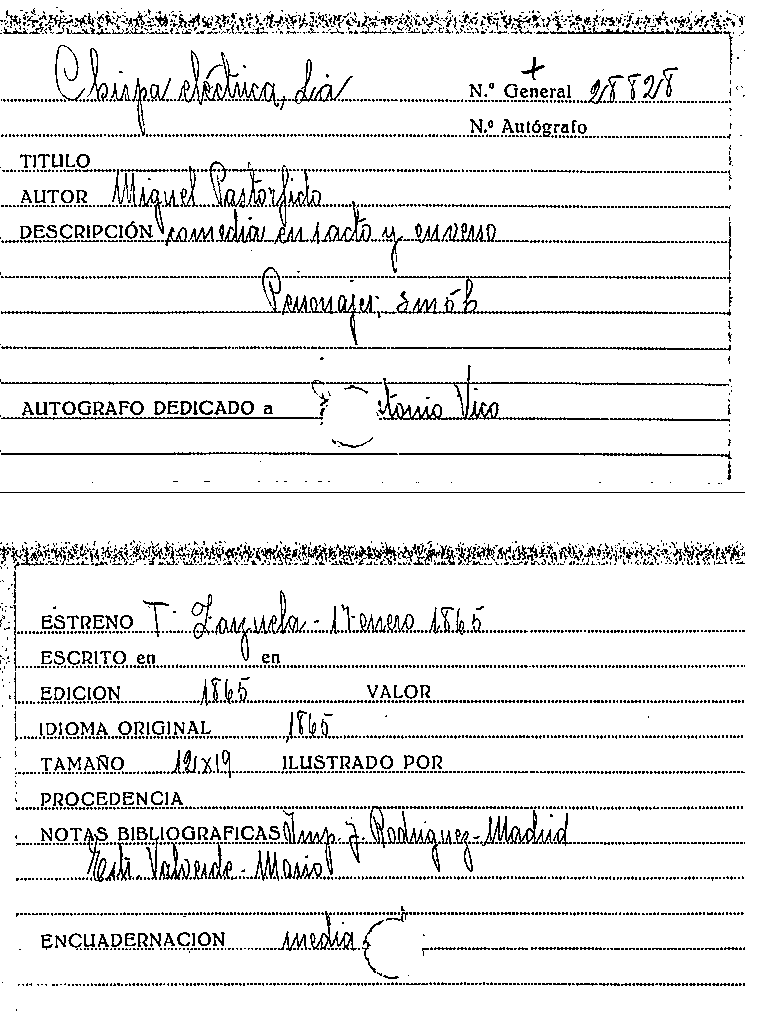 Chispa eléctrica, La
+
N.º General 28828
N.º Autógrafo
TITULO
AUTOR Miguel Pastorfido
DESCRIPCIÓN comedia en 1 acto y en verso
Personajes: 5 m 5 h
AUTOGRAFO DEDICADO a tonio Vico
ESTRENO T. Zarzuela - 17 enero 1865
ESCRITO en en
EDICION 1865 VALOR
IDIOMA ORIGINAL 1865
TAMAÑO 12x19 ILUSTRADO POR
PROCEDENCIA
NOTAS BIBLIOGRAFICAS Imp. J. Rodriguez - Madrid
Valverde - Mario
ENCUADERNACION media